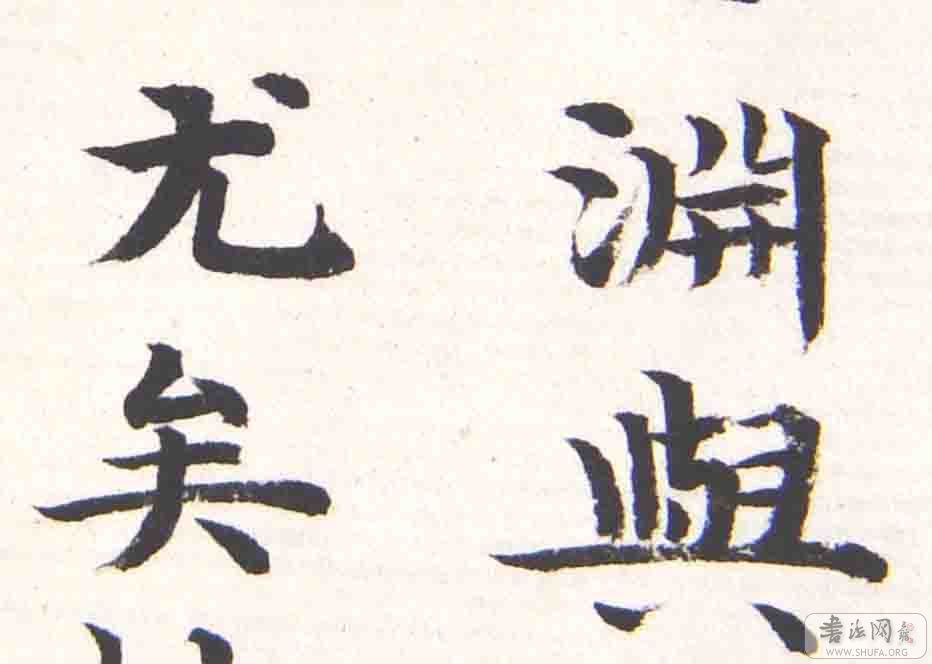 淵與
尤矣
书法网
WWW.SHUFA.ORG